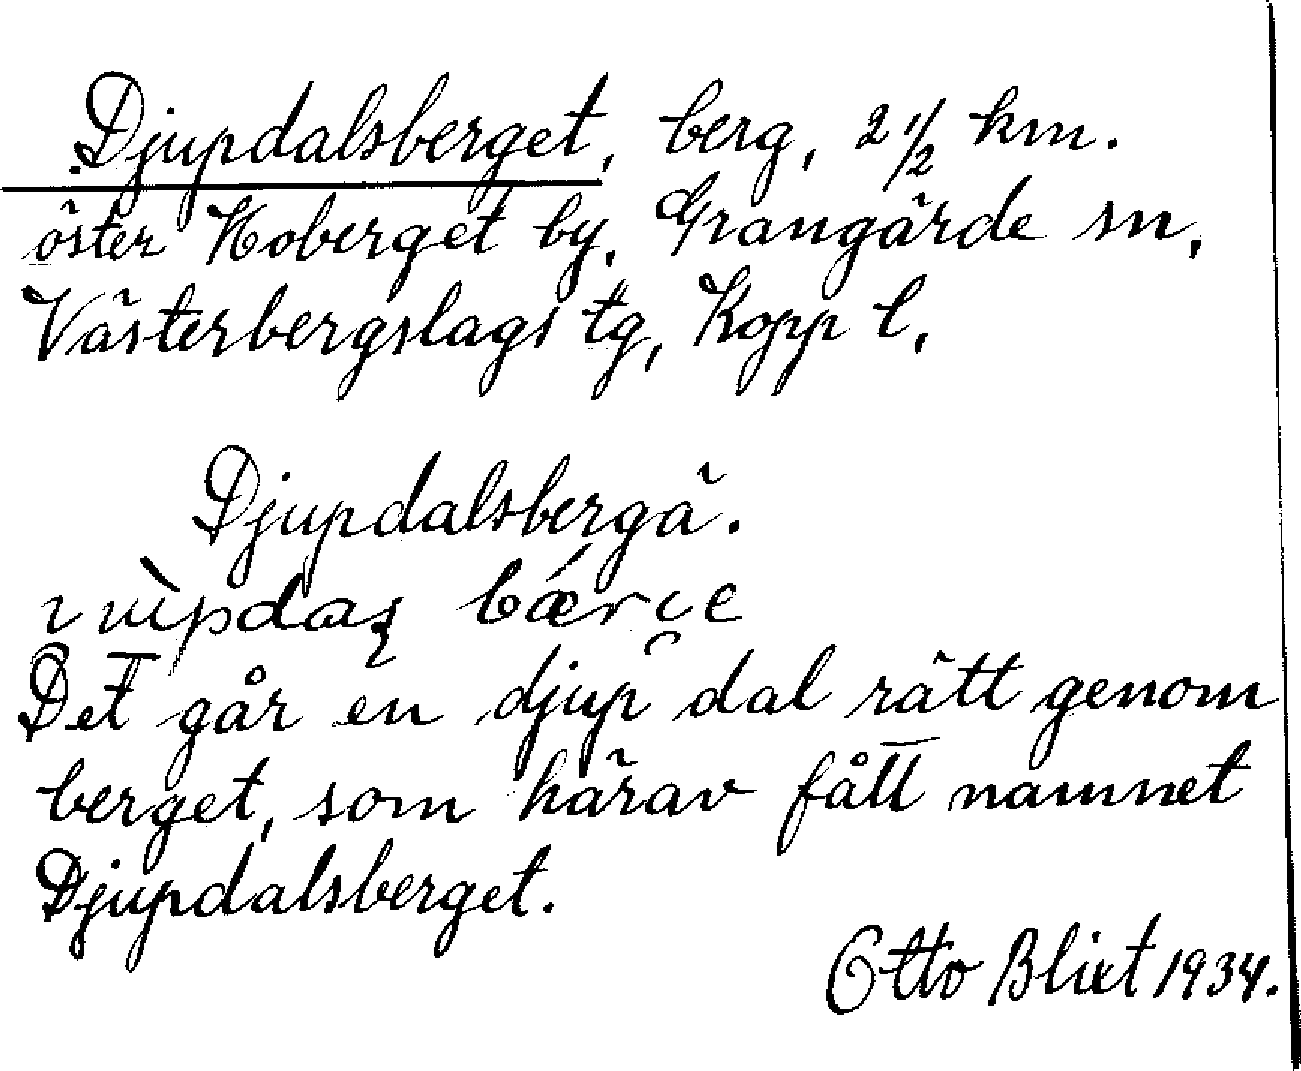 Djupdalsberget, berg, 2 1/2 km.
öster Hoberget by, Grangärde sn,
Västerbergslags tg, Kopp l.
Djupdalsbergä.
Det går en djup dal rätt genom
berget, som härav fått namnet
Djupdalsberget.
Otto Blixt 1934.